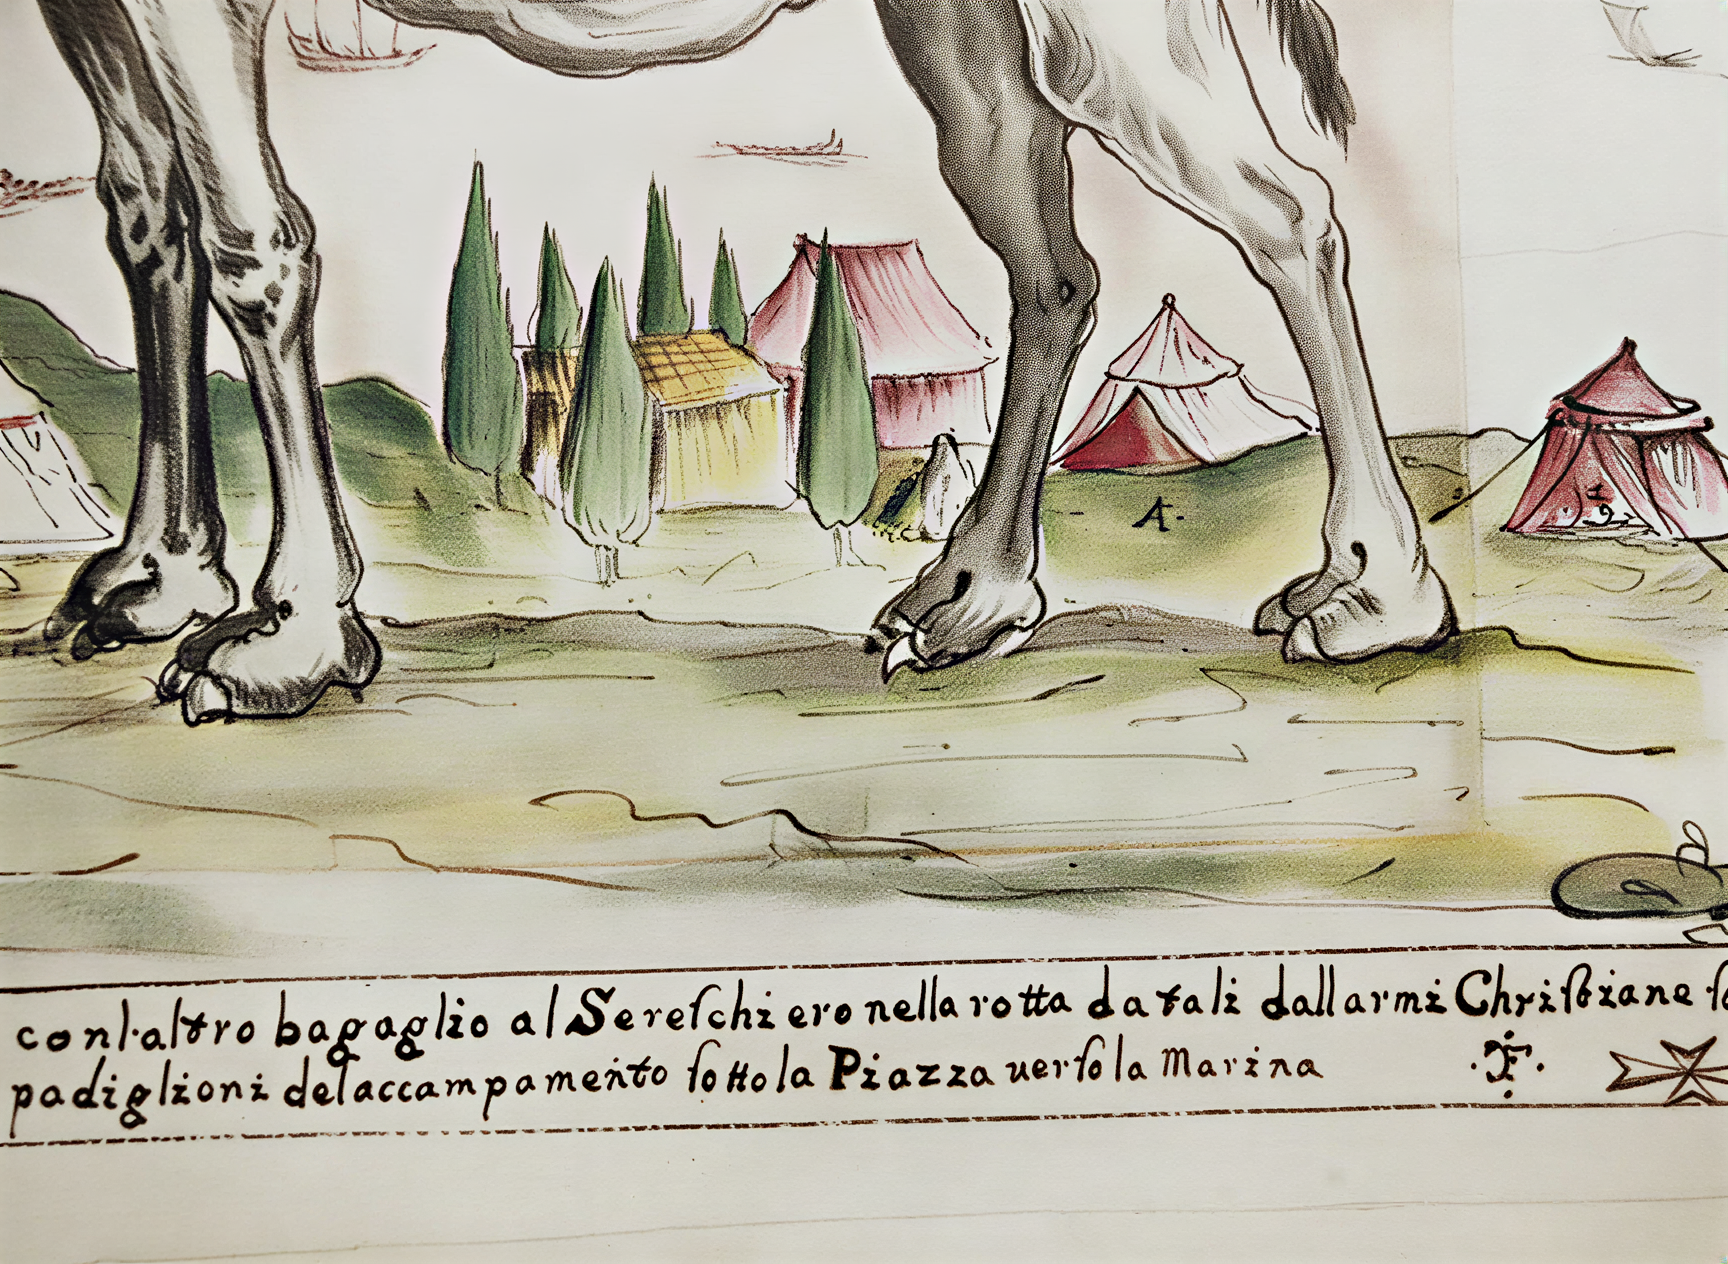 A.
conl'altro bagaglio al Sereſchiero nella rotta datali dall armi Chriſtiane
padiglioni delaccampamento ſotto la Piazza uerſo la Marina